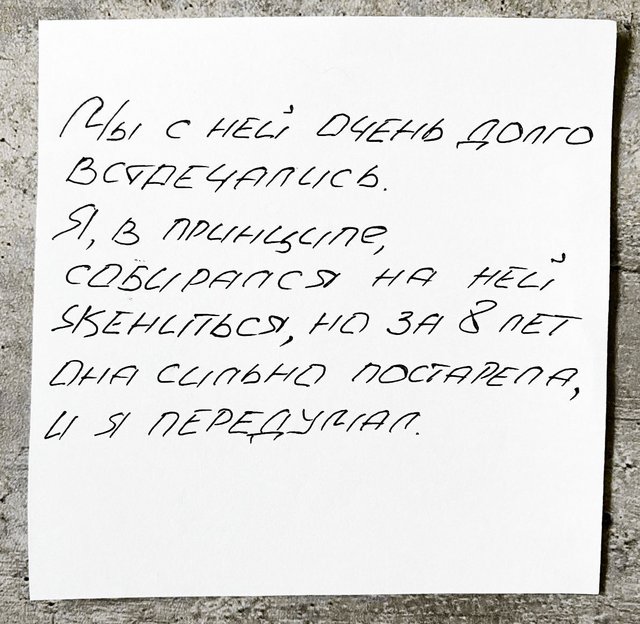 Мы с ней очень долго
встречались.
Я, в принципе,
собирался на ней
жениться, но за 8 лет
она сильно постарела,
и я передумал.